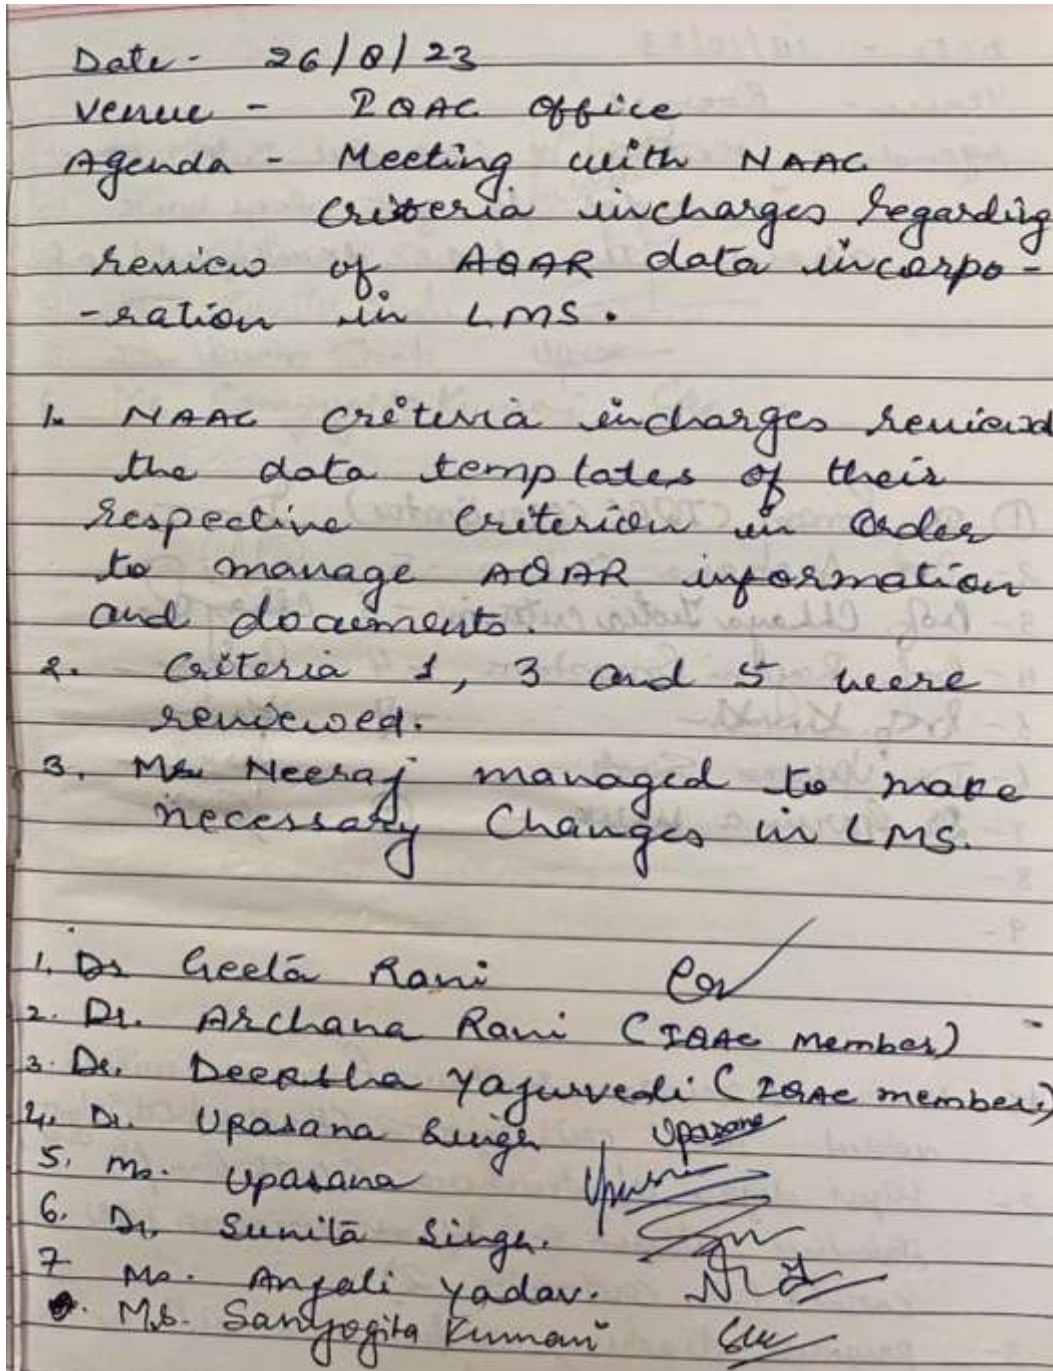 Date - 26/8/23
Venue - IQAC Office
Agenda - Meeting with NAAC
criteria incharges regarding
review of AQAR data incorpo-
-ration in LMS.
1. NAAC criteria incharges reviewd
the data templates of their
respective criterion in order
to manage AQAR information
and documents.
2. Criteria 1, 3 and 5 were
reviewed.
3. Mr Neeraj managed to make
necessary Changes in LMS.
1. Dr Geeta Rani
2. Dr. Archana Rani (IQAC Member)
3. Dr. Deeptha Yajurvedi (IQAC member)
4. Dr. Upasana Singh Upasana
5. Ms. Upasana
6. Dr. Sunita Singh.
7 Ms. Anjali Yadav.
8. Ms. Sanyogita Kumari